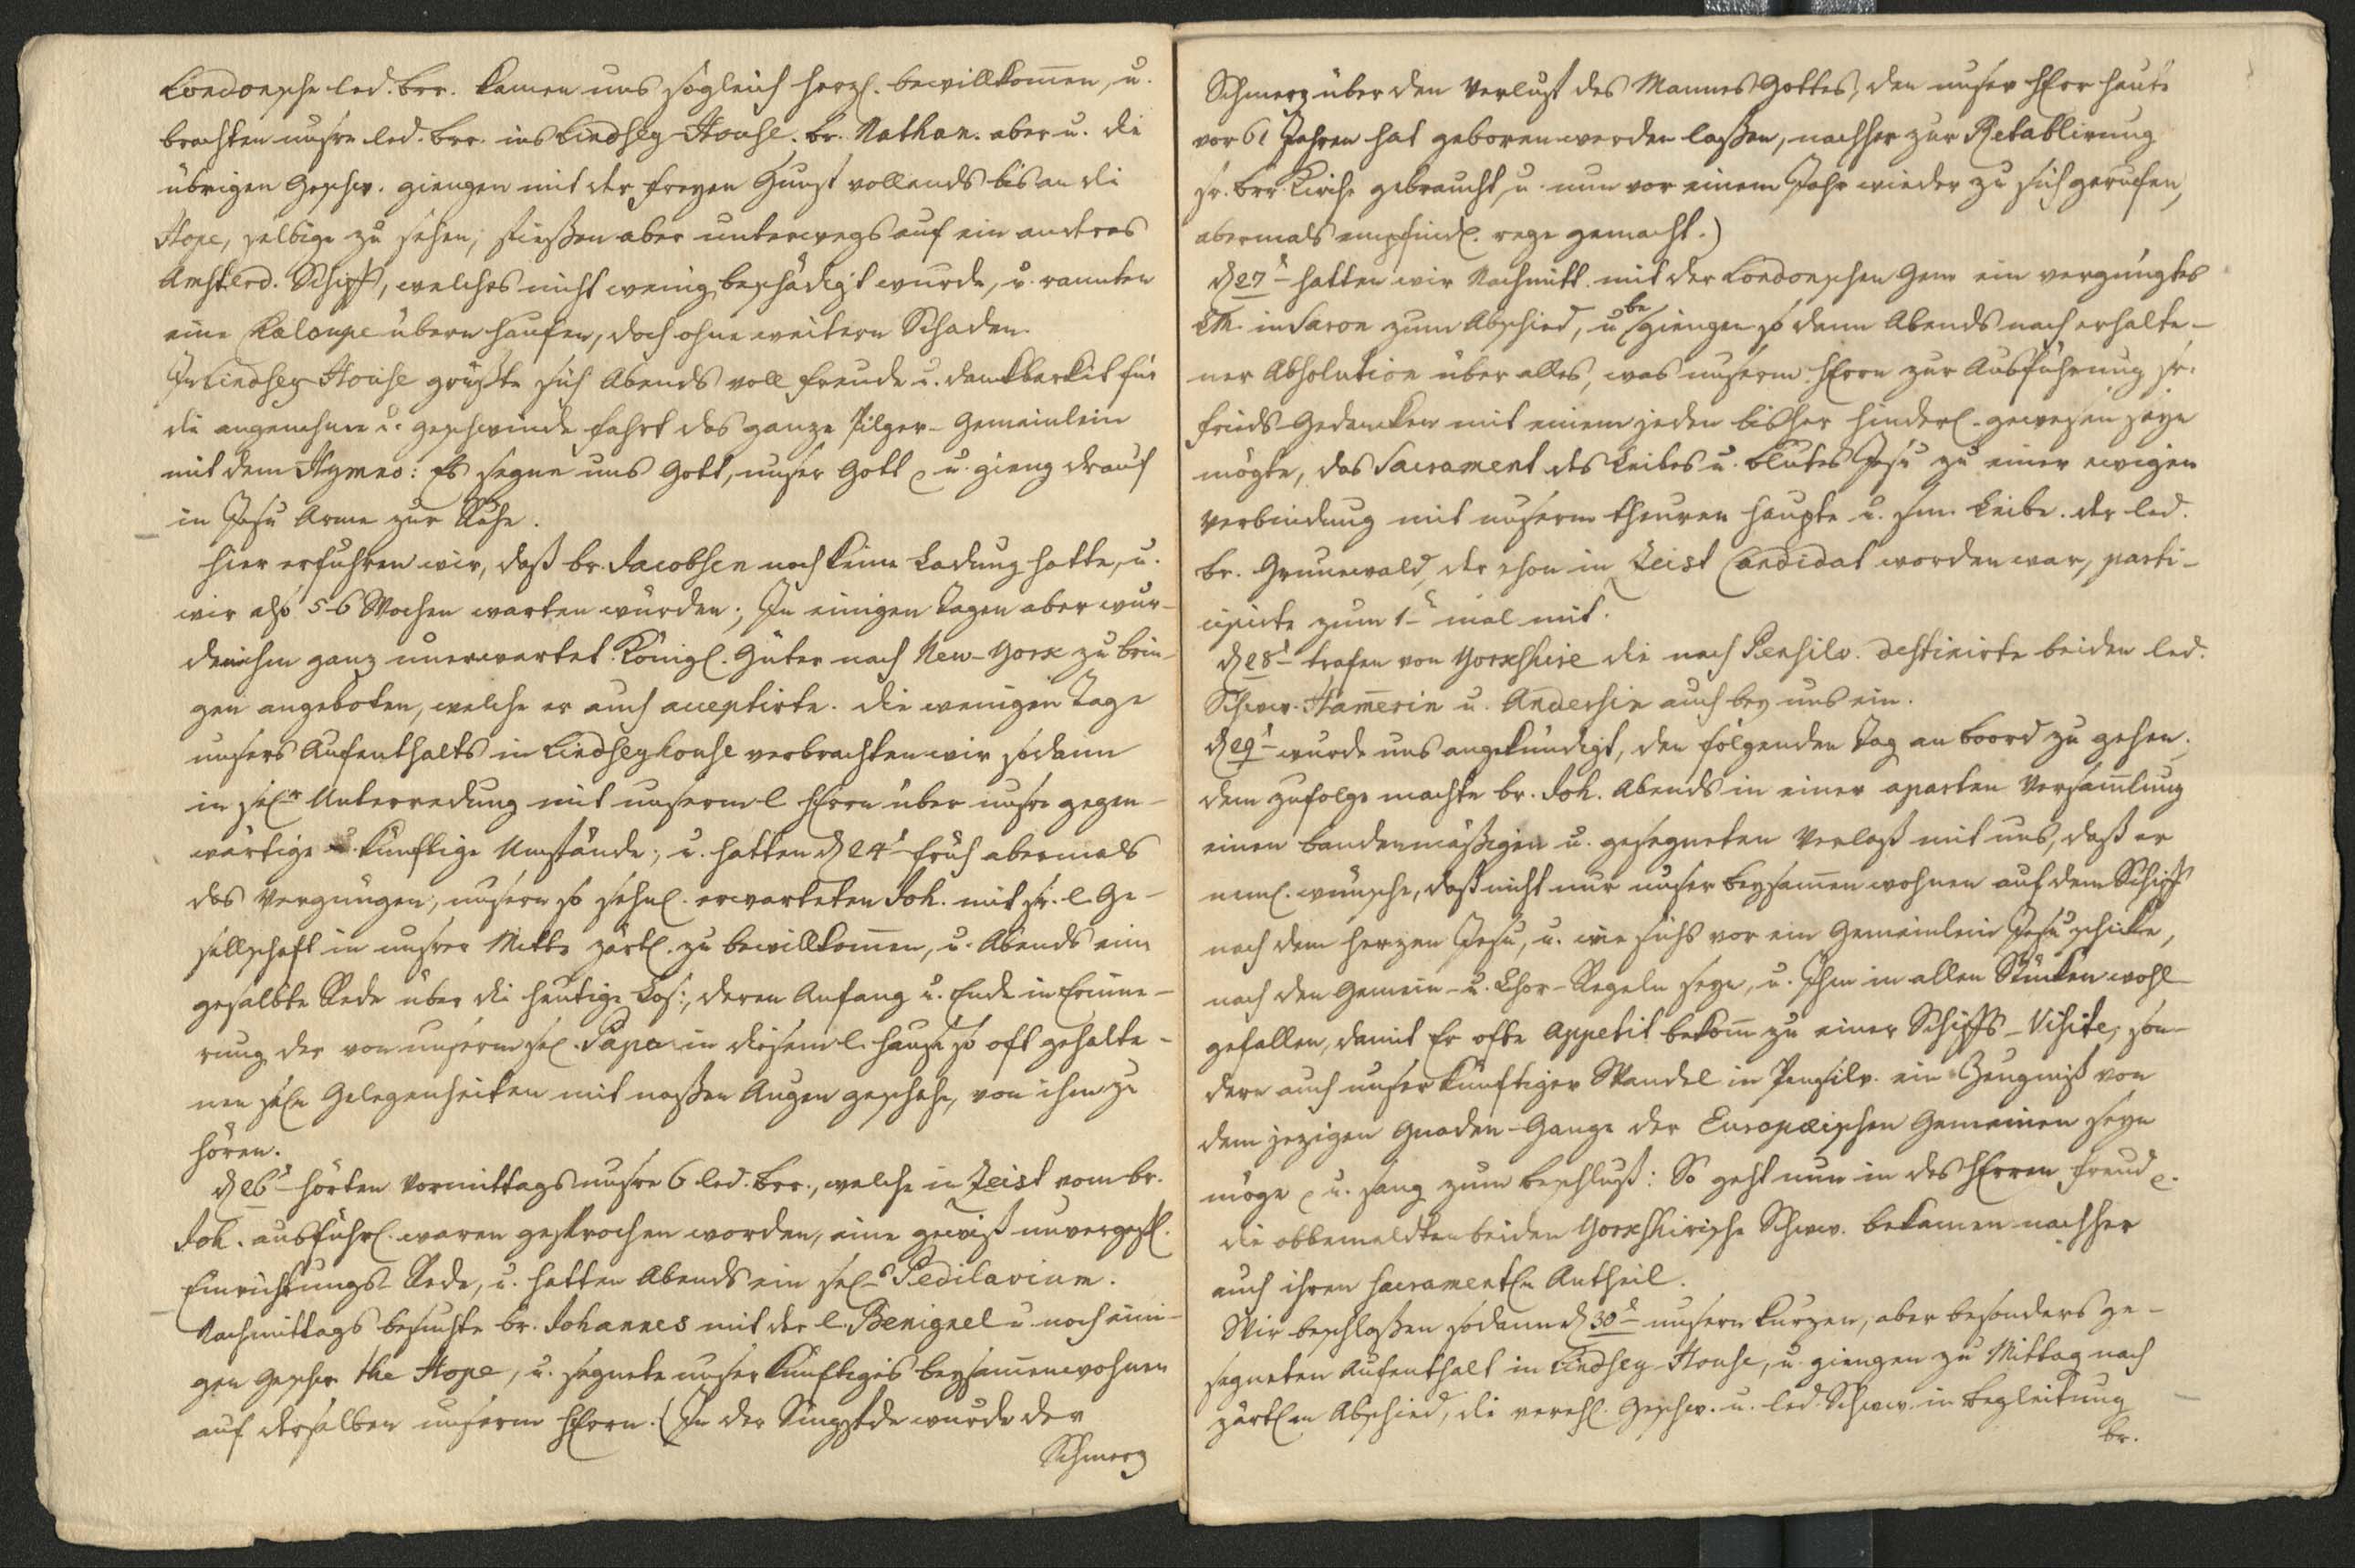 Londonsche led. brr. kamen uns sogleich herzl. bewillkom̄en, u.
brachten unsre led. brr. ins Lindsey-House. br. Nathan. aber u. die
übrigen Geschw. giengen mit der freyen Gunst vollends bis an die
Hope, selbige zu sehen; stießen aber unterwegs auf ein anders
Amsterd. Schiff, welches nicht wenig beschädigt wurde, u. rannten
eine Kaloupe übern haufen, doch ohne weitern Schaden.
In Lindsey House grüßte sich Abends voll freude u. dankbarkeit für
die angenehme u. geschwinde fahrt das ganze Pilger-Gemeinlein
mit dem Hymno: Es segne uns Gott, unser Gott u. gieng drauf
in Jesu Arme zur Ruhe.
hier erfuhren wir, daß br. Jacobsen noch keine Ladung hatte, u.
wir also 5-6 Wochen warten würden; In einigen Tagen aber wur-
den ihm ganz unerwartet Königl. Güter nach New-York zu brin-
gen angeboten, welche er auch acceptirte. die wenigen Tage
unsers Aufenthalts in Lindseyhouse verbrachten wir sodann
in selr Unterredung mit unserm l. HErrn über unsre gegen-
wärtige u. künftige Umstände; u. hatten d 24t früh abermals
das Vergnügen, unsern so sehnl. erwarteten Joh. mit sr. l. Ge-
sellschaft in unsrer Mitte zärtl. zu bewillkom̄en, u. Abends eine
gesalbte Rede über die heutige Los:, deren Anfang u. Ende in Erinne-
rung der von unserm sel. Papa in diesem l. hause so oft gehalte-
nen seln Gelegenheiten mit naßen Augen geschahe, von ihm zu
hören.
d 26t hörten Vormittags unsre 6 led. brr., welche in Zeist vom br.
Joh. ausführl. waren gesprochen worden, eine gewiß unvergeßl.
Einrichtungs-Rede, u. hatten Abends ein sels Pedilavium.
Nachmittags besuchte br. Johannes mit der l. Benignel u. noch eini-
gen Geschw. the Hope, u. segnete unser künftiges beysam̄enwohnen
auf derselben unserm HErrn. (In der Singstde wurde der
Schmerz
Schmerz über den Verlust des Mannes Gottes, den unser HErr heute
vor 61 Jahren hat geboren werden laßen, nachher zur Retablirung
sr. brr. Kirche gebraucht, u. nun vor einem Jahr wieder zu sich gerufen,
abermals empfindl. rege gemacht.)
d 27t hatten wir Nachmitt. mit der Londonschen Gem ein vergnügtes
LM. in Saron zum Abschied, u. be giengen so dann Abends nach erhalte-
ner Absolution über alles, was unserm HErrn zur Ausführung sr.
frieds-Gedancken mit einem jeden bisher hinderl. gewesen seyn
mögte, das Sacrament des Leibes u. Blutes Jesu zu einer ewigen
Verbindung mit unserm theuren Haupte u. sm. Leibe. der led.
br. Grunewald, der schon in Zeist Candidat worden war, parti-
cipirte zum 1t mal mit.
d 28t trafen von Yorkshire die nach Pensilv. destinirte beiden led.
Schww. Ham̄erin u. Andersin auch bey uns ein.
d 29t wurde uns angekündigt, den folgenden Tag an boord zu gehen.
dem zufolge machte br. Joh. Abends in einer aparten Versam̄lung
einen bandenmäßigen u. gesegneten Verlaß mit uns, daß er
neml. wünsche, daß nicht nur unser beysam̄en wohnen auf dem Schiff
nach dem herzen Jesu, u. wie sichs vor ein Gemeinlein Jesu schicke,
nach den Gemein- u. Chor-Regeln seye, u. Ihm in allen Stücken wohl
gefallen, damit Er ofte Appetit bekom̄ zu einer Schiffs-Visite, son-
dern auch unser künftiger Wandel in Pensilv. ein Zeugniß von
dem jezigen Gnaden-Gange der Europæischen Gemeinen seyn
möge u. sang zum beschluß: So geht nun in des HErren Freud
die obbemeldten beiden Yorkshirische Schww. bekamen nachher
auch ihren sacramentln Antheil.
Wir beschloßen sodann d 30t unsern kurzen, aber besonders ge-
segneten Aufenthalt in Lindsey-House, u. giengen zu Mittag nach
zärtlm Abschied, die verehl. Geschw. u. led. Schww. in begleitung
br.